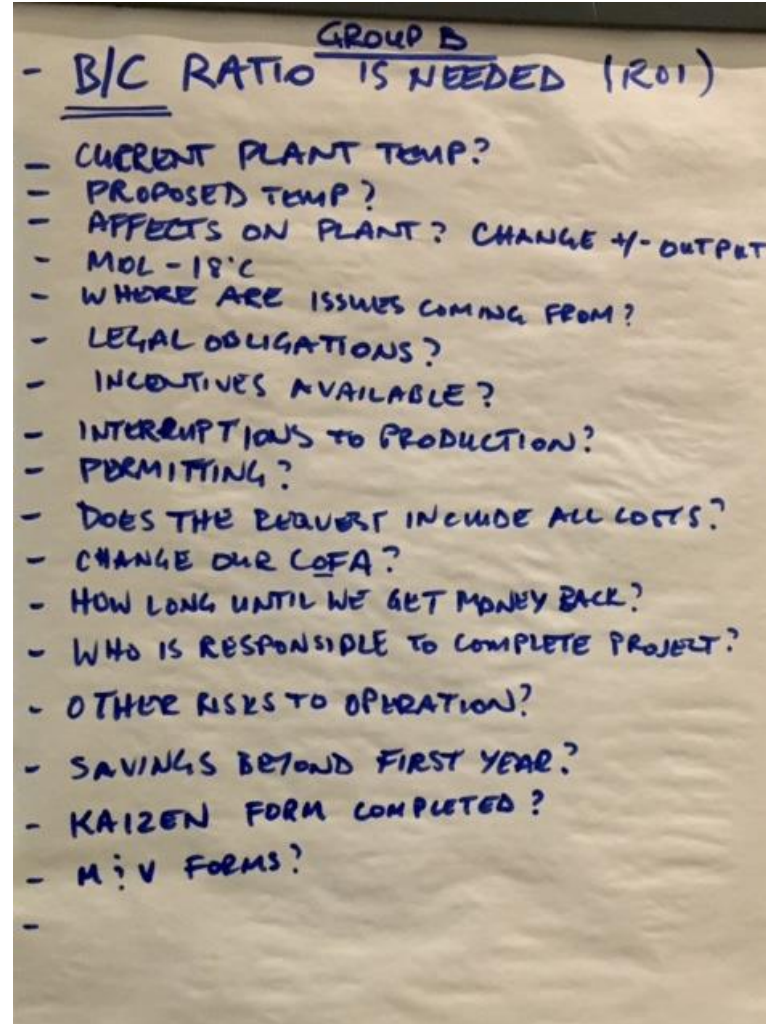 GROUP B
- B/C RATIO IS NEEDED (ROI)
- CURRENT PLANT TEMP?
- PROPOSED TEMP?
- AFFECTS ON PLANT? CHANGE +/- OUTPUT
- MOL - 18°C
- WHERE ARE ISSUES COMING FROM?
- LEGAL OBLIGATIONS?
- INCENTIVES AVAILABLE?
- INTERRUPTIONS TO PRODUCTION?
- PERMITTING?
- DOES THE REQUEST INCLUDE ALL COSTS?
- CHANGE OUR COFA?
- HOW LONG UNTIL WE GET MONEY BACK?
- WHO IS RESPONSIBLE TO COMPLETE PROJECT?
- OTHER RISKS TO OPERATION?
- SAVINGS BEYOND FIRST YEAR?
- KAIZEN FORM COMPLETED?
- M & V FORMS?
-